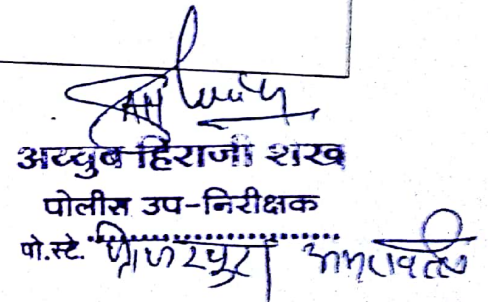 अय्युब हिराजी शेख
पोलीस उप-निरीक्षक
पो.स्टे. फ्रेजरपुरा अमरावती